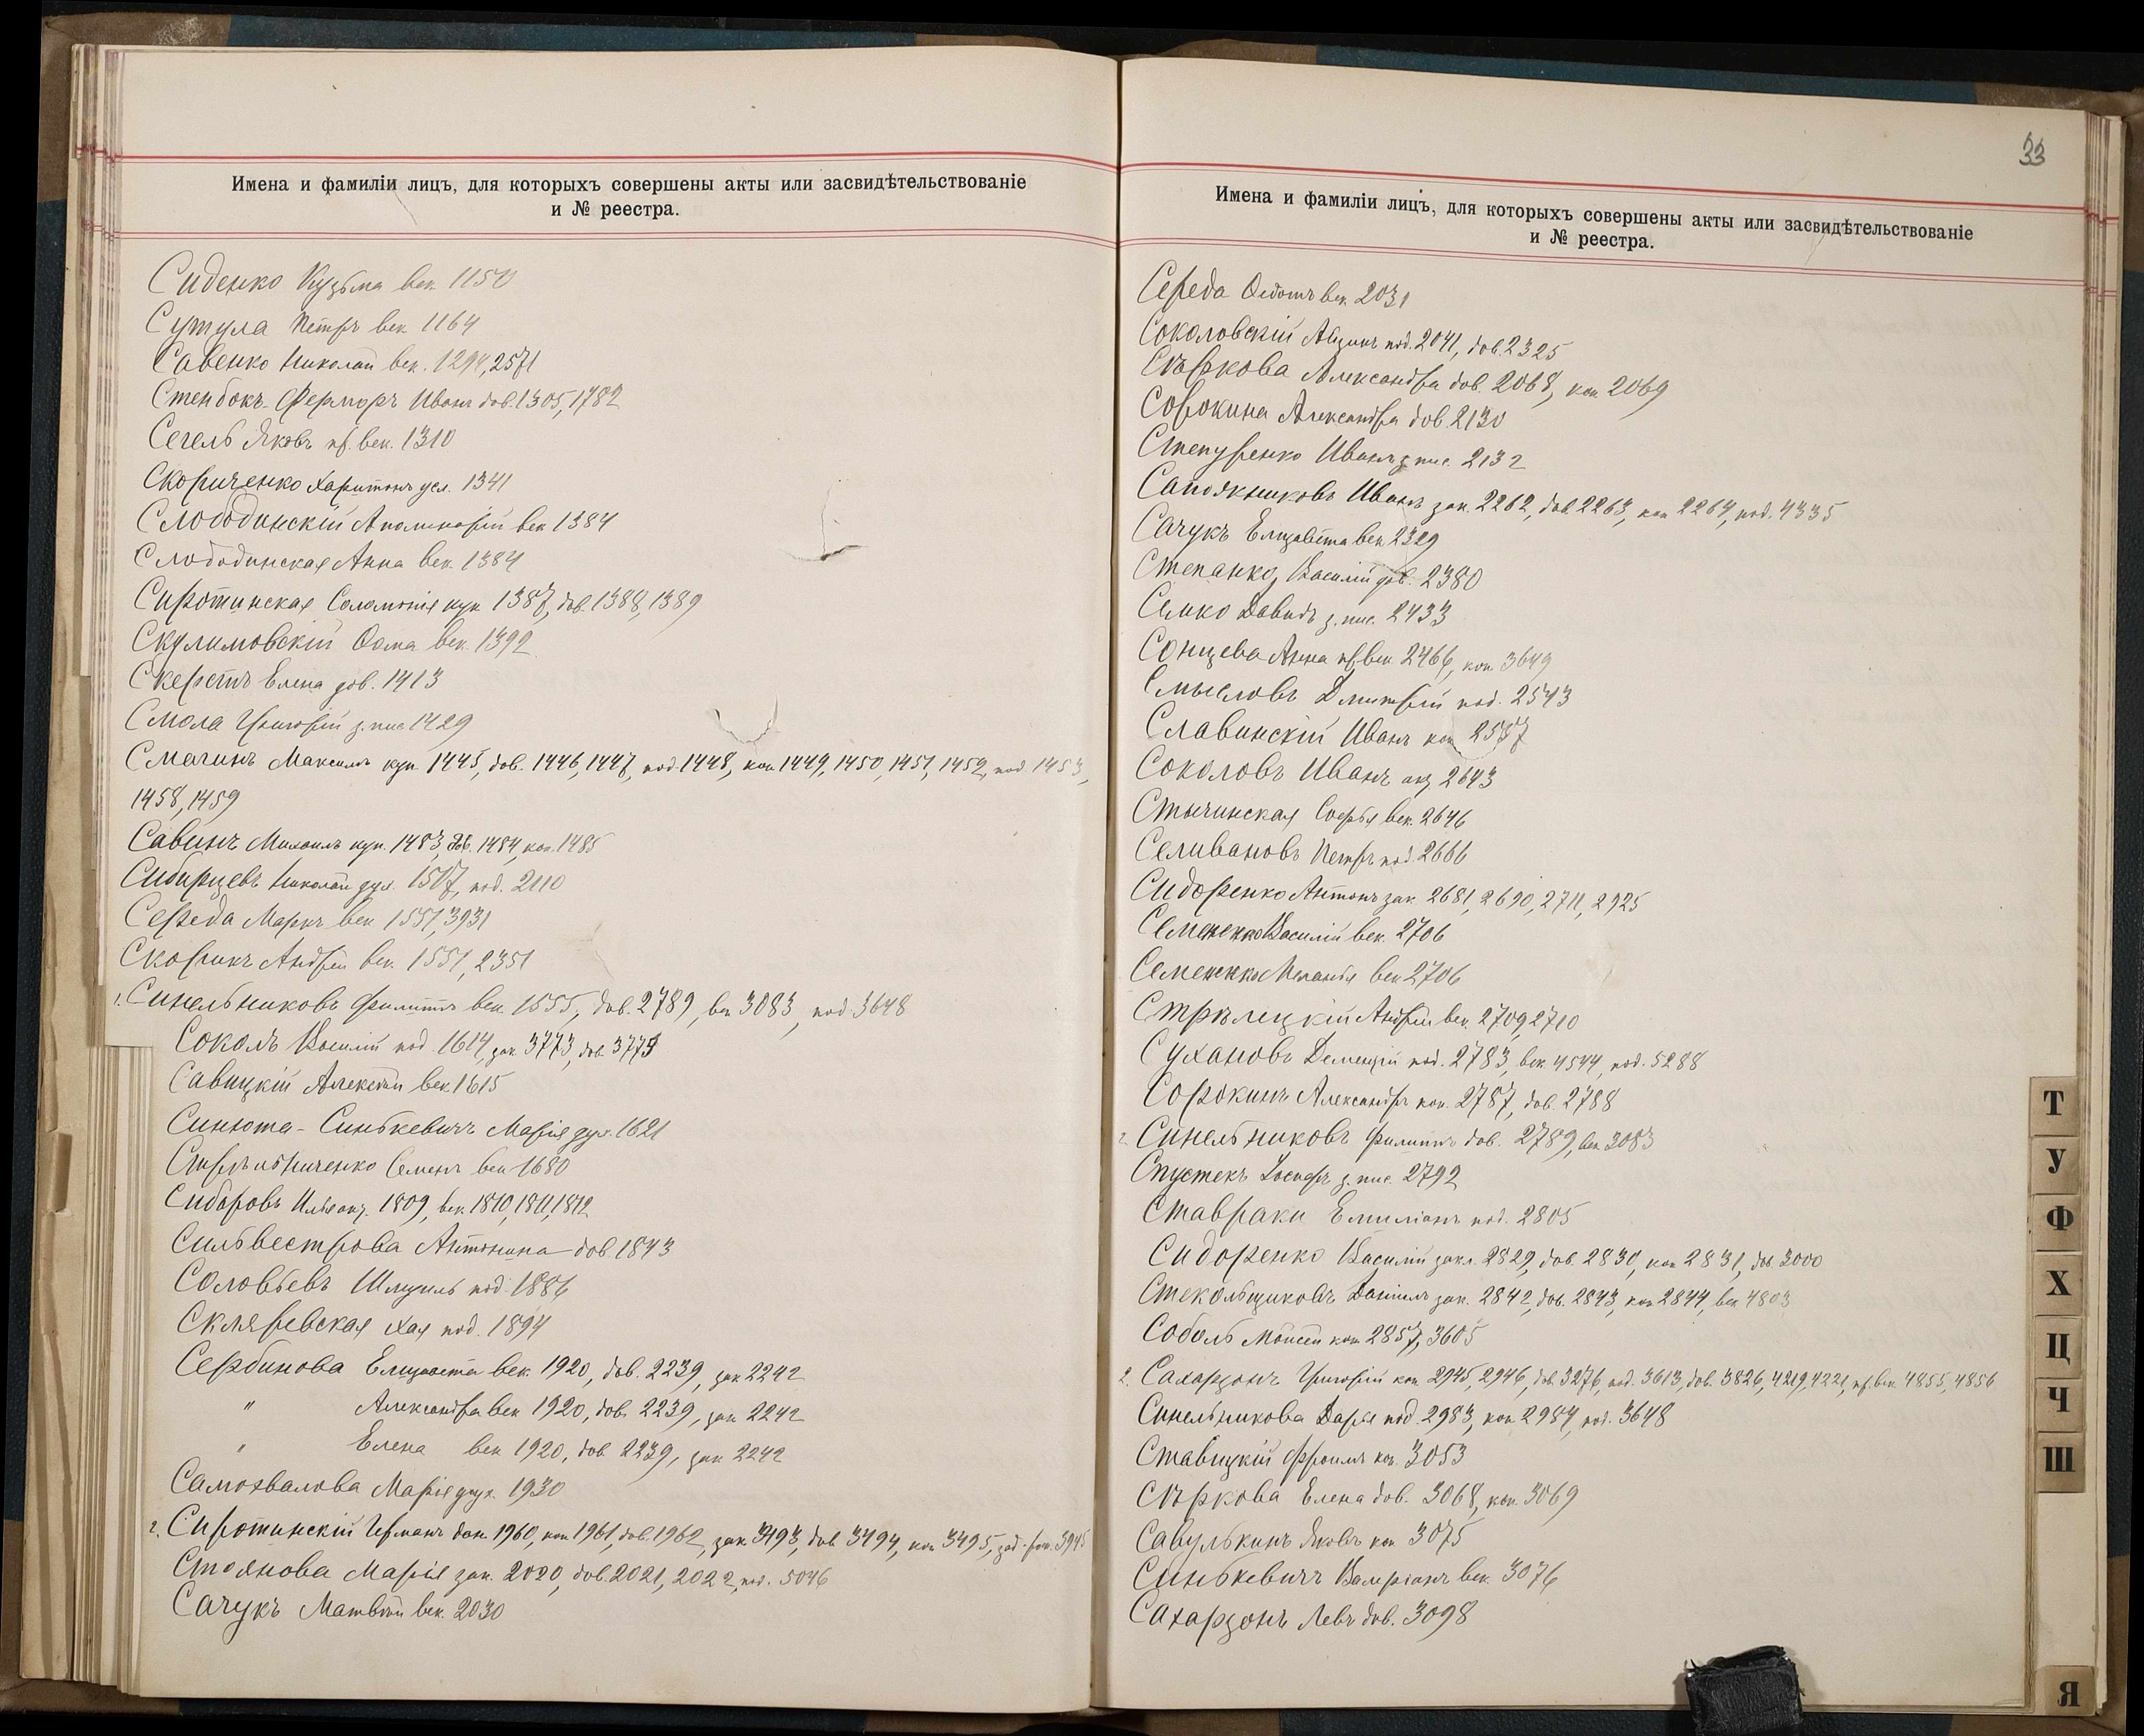 Имена и фамиліи лицъ, для которыхъ совершены акты или засвидѣтельствованіе
и № реестра.
Сиденко Кузьма век. 1150
Сутула Петръ век. 1164
Савенко Николай век. 1294, 2571
Стенбокъ-Ферморъ Иванъ дов. 1305, 1782
Сегель Яковъ пр. век. 1310
Скориченко Харитонъ усл. 1341
Слободинскій Аполинарій век. 1384
Слободинская Анна век. 1384
Сиротинская Саломонія куп. 1387, дов. 1388, 1389
Скулимовскій Ѳома век. 1392
Скерстъ Елена дов. 1413
Смола Григорій з. пис. 1429
Смагинъ Максимъ куп. 1445, дов. 1446, 1447, под. 1448, коп. 1449, 1450, 1451, 1452, под. 1453,
1458, 1459
Савинъ Михаилъ куп. 1483, дов. 1484, коп. 1485
Сибирцевъ Николай дух. 1517, под. 2110
Середа Маркъ век. 1551, 3931
Скорикъ Андрей век. 1551, 2351
1. Синельниковъ Филиппъ век. 1555, дов. 2789, век. 3083, под. 3648
Соколъ Василій под. 1614, зак. 3773, дов. 3774
Савицкій Алексѣй век. 1615
Синюта-Синькевичъ Марія дух. 1621
Семенъ век. 1680
Сидоровъ Илья акц. 1809, век. 1810, 1811, 1812
Сильвестрова Антонина дов. 1843
Соловьевъ Шмуиль под. 1886
Скляревская Хая под. 1894
Сербинова Елизавета век. 1920, дов. 2239, зак. 2242
" Александра век. 1920, дов. 2239, зак. 2242
" Елена век. 1920, дов. 2239, зак. 2242
Самохвалова Марія дух. 1930
2. Сиротинскій Германъ дан. 1960, коп. 1961, дов. 1962, зак. 3493, дов. 3494, коп. 3495, 3945
Стоянова Марія зак. 2020, дов. 2021, 2022, под. 5046
Сачукъ Матвѣй век. 2030
33
Имена и фамиліи лицъ, для которыхъ совершены акты или засвидѣтельствованіе
и № реестра.
Середа Ѳедотъ век. 2031
Соколовскій под. 2041, дов. 2325
Сѣркова Александра дов. 2068, коп. 2069
Сорокина Александра дов. 2130
Степуренко Иванъ з. пис. 2132
Сапожниковъ Иванъ зак. 2262, дов. 2263, коп. 2264, под. 4335
Сачукъ Елизавета век. 2329
Степанко Василій дов. 2380
Семко Давидъ з. пис. 2433
Сонцева Анна пр. век. 2466, коп. 3649
Смысловъ Дмитрій под. 2543
Славинскій Иванъ коп. 2557
Соколовъ Иванъ акц. 2643
Стычинская Софья век. 2646
Селивановъ Петръ под. 2666
Сидоренко Антонъ зак. 2681, 2690, 2711, 2925
Семененко Василій век. 2706
Семененко Меланья век. 2706
Стрѣлецкій Андрей век. 2709, 2710
Сухановъ Дементій под. 2783, век. 4544, под. 5288
Сорокинъ Александръ коп. 2787, дов. 2788
2. Синельниковъ Филиппъ дов. 2789, век. 3083
Спустекъ Іосифъ з. пис. 2792
Ставраки Емиліанъ под. 2805
Сидоренко Василій закл. 2829, дов. 2830, коп. 2831, дов. 3000
Стекольщиковъ Даніилъ зак. 2842, дов. 2843, коп. 2844, век. 4803
Соболь Моисей коп. 2857, 3605
2. Сахарзонъ Григорій коп. 2945, 2946, дов. 3276, под. 3613, дов. 3826, 4219, 4221, пр. век. 4855, 4856
Синельникова Дарья под. 2983, коп. 2984, под. 3648
Ставицкій Фроимъ коп. 3053
Сѣркова Елена дов. 3068, коп. 3069
Савулькинъ Яковъ коп. 3075
Синькевичъ Валеріанъ век. 3076
Сахарзонъ Левъ дов. 3098
Т
У
Ф
Х
Ц
Ч
Ш
Я